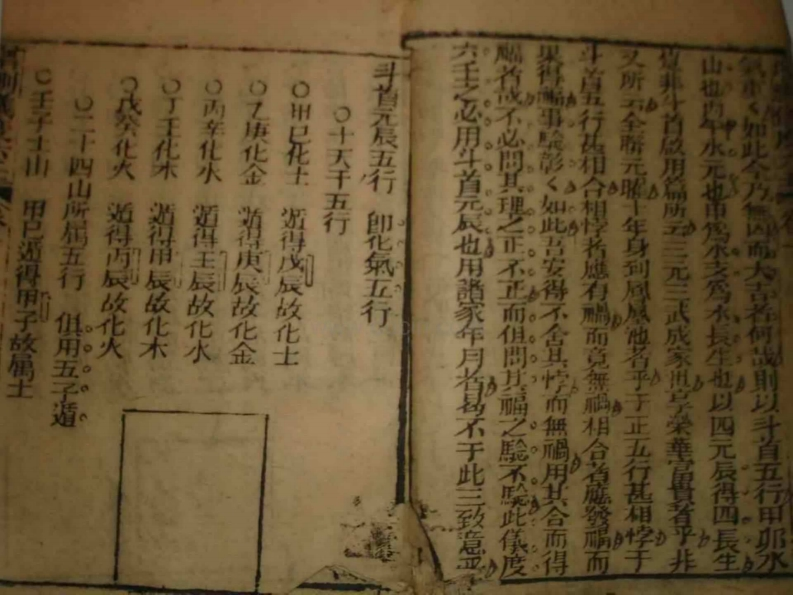 氣重く如此今乃無凶而大吉者何哉則以斗首五行甲卯水
山也丙年水元也申爲水支爲水長生也以四元辰得四長生
豈非斗首啟用篇所云三元三武成家祖享榮華富貴者乎非
又所云全勝元曜十年身到鳳凰池者乎于正五行甚相悖于
斗首五行甚相合相悖者應有禍而竟無禍相合者應發福而
果得福事驗彰く如此吾安得不舍其悖而無禍用其合而得
福者哉不必問其理之正不正而但問其福之驗不驗此儀度
六壬之必用斗首元辰也用諸家年月者曷不于此三致意乎
斗首元辰五行 卽化氣五行
○十天干五行
○甲巳化土 遁得戊辰故化土
○乙庚化金 遁得庚辰故化金
○丙辛化水 遁得壬辰故化水
○丁壬化木 遁得甲辰故化木
○戊癸化火 遁得丙辰故化火
○二十四山所屬五行 俱用五子遁
○壬子土山 甲巳遁得甲子故属土